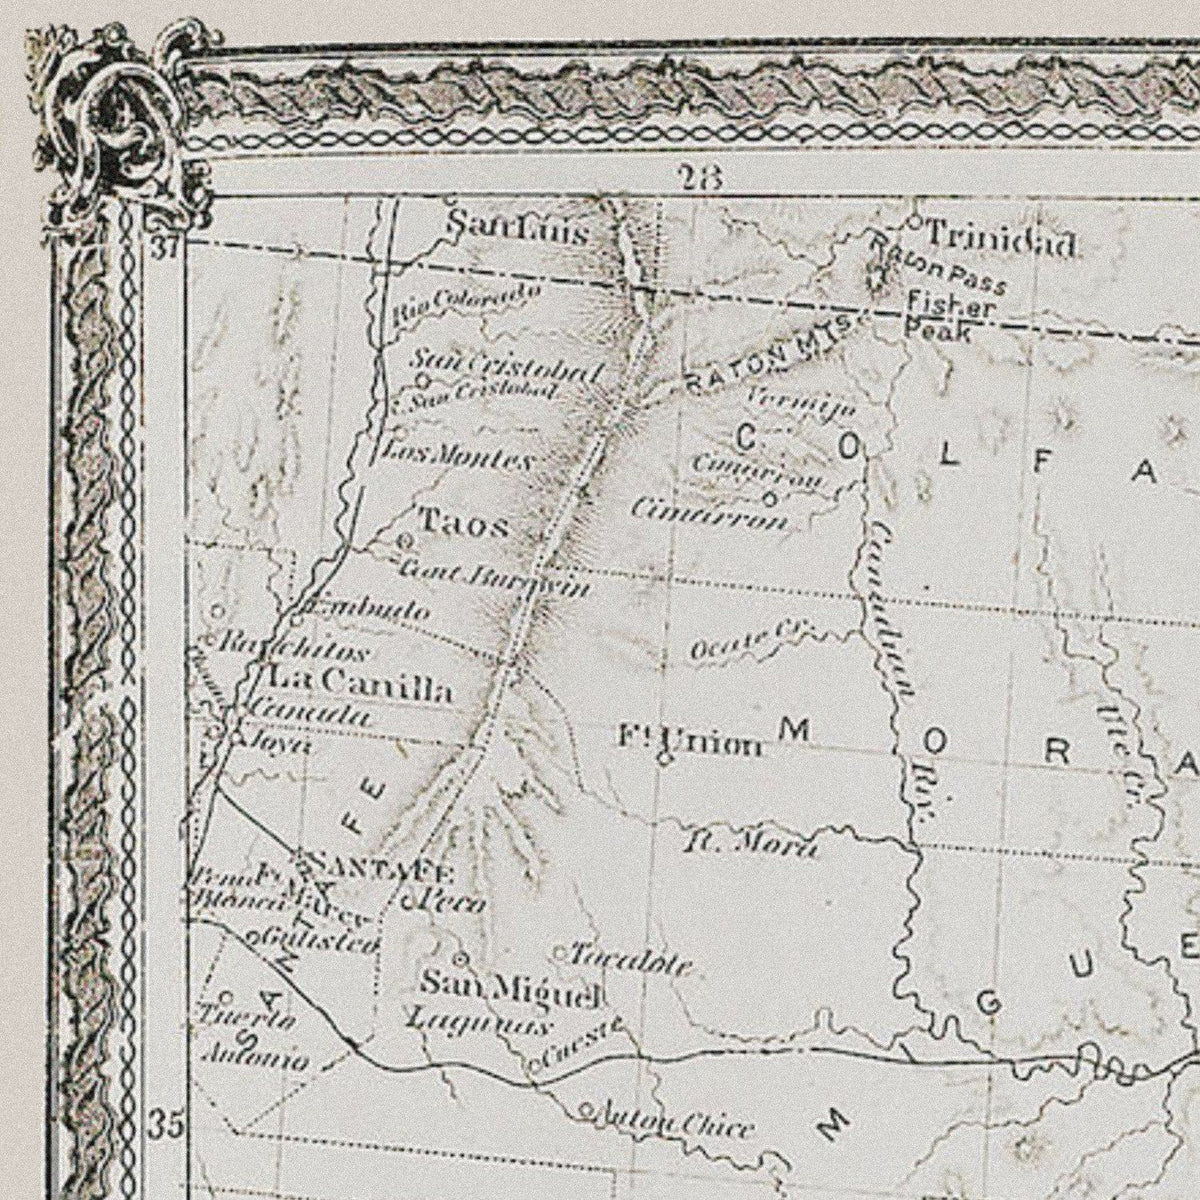 28
37
San Luis
Trinidad
Raton Pass
Fisher
Peak
Rio Colorado
RATON MTS.
San Cristobal
San Cristobal
Vermijo
COLFA
Los Montes
Cimarron
Cimarron
Taos
Cant. Burgwin
Canadian Riv.
Embudo
Ocate Cr.
Ranchitos
La Canilla
Canada
Joya
Ft. Union
MORA
Ute Cr.
SANTA FE
R. Mora
SANTA FE
Pena
Blanca
Ft. Marcy
Peco
Galisteo
Tacalote
San Miguel
GUE
Lagunas
Cuesta
Tuerto
Antonio
35
Anton Chice
M